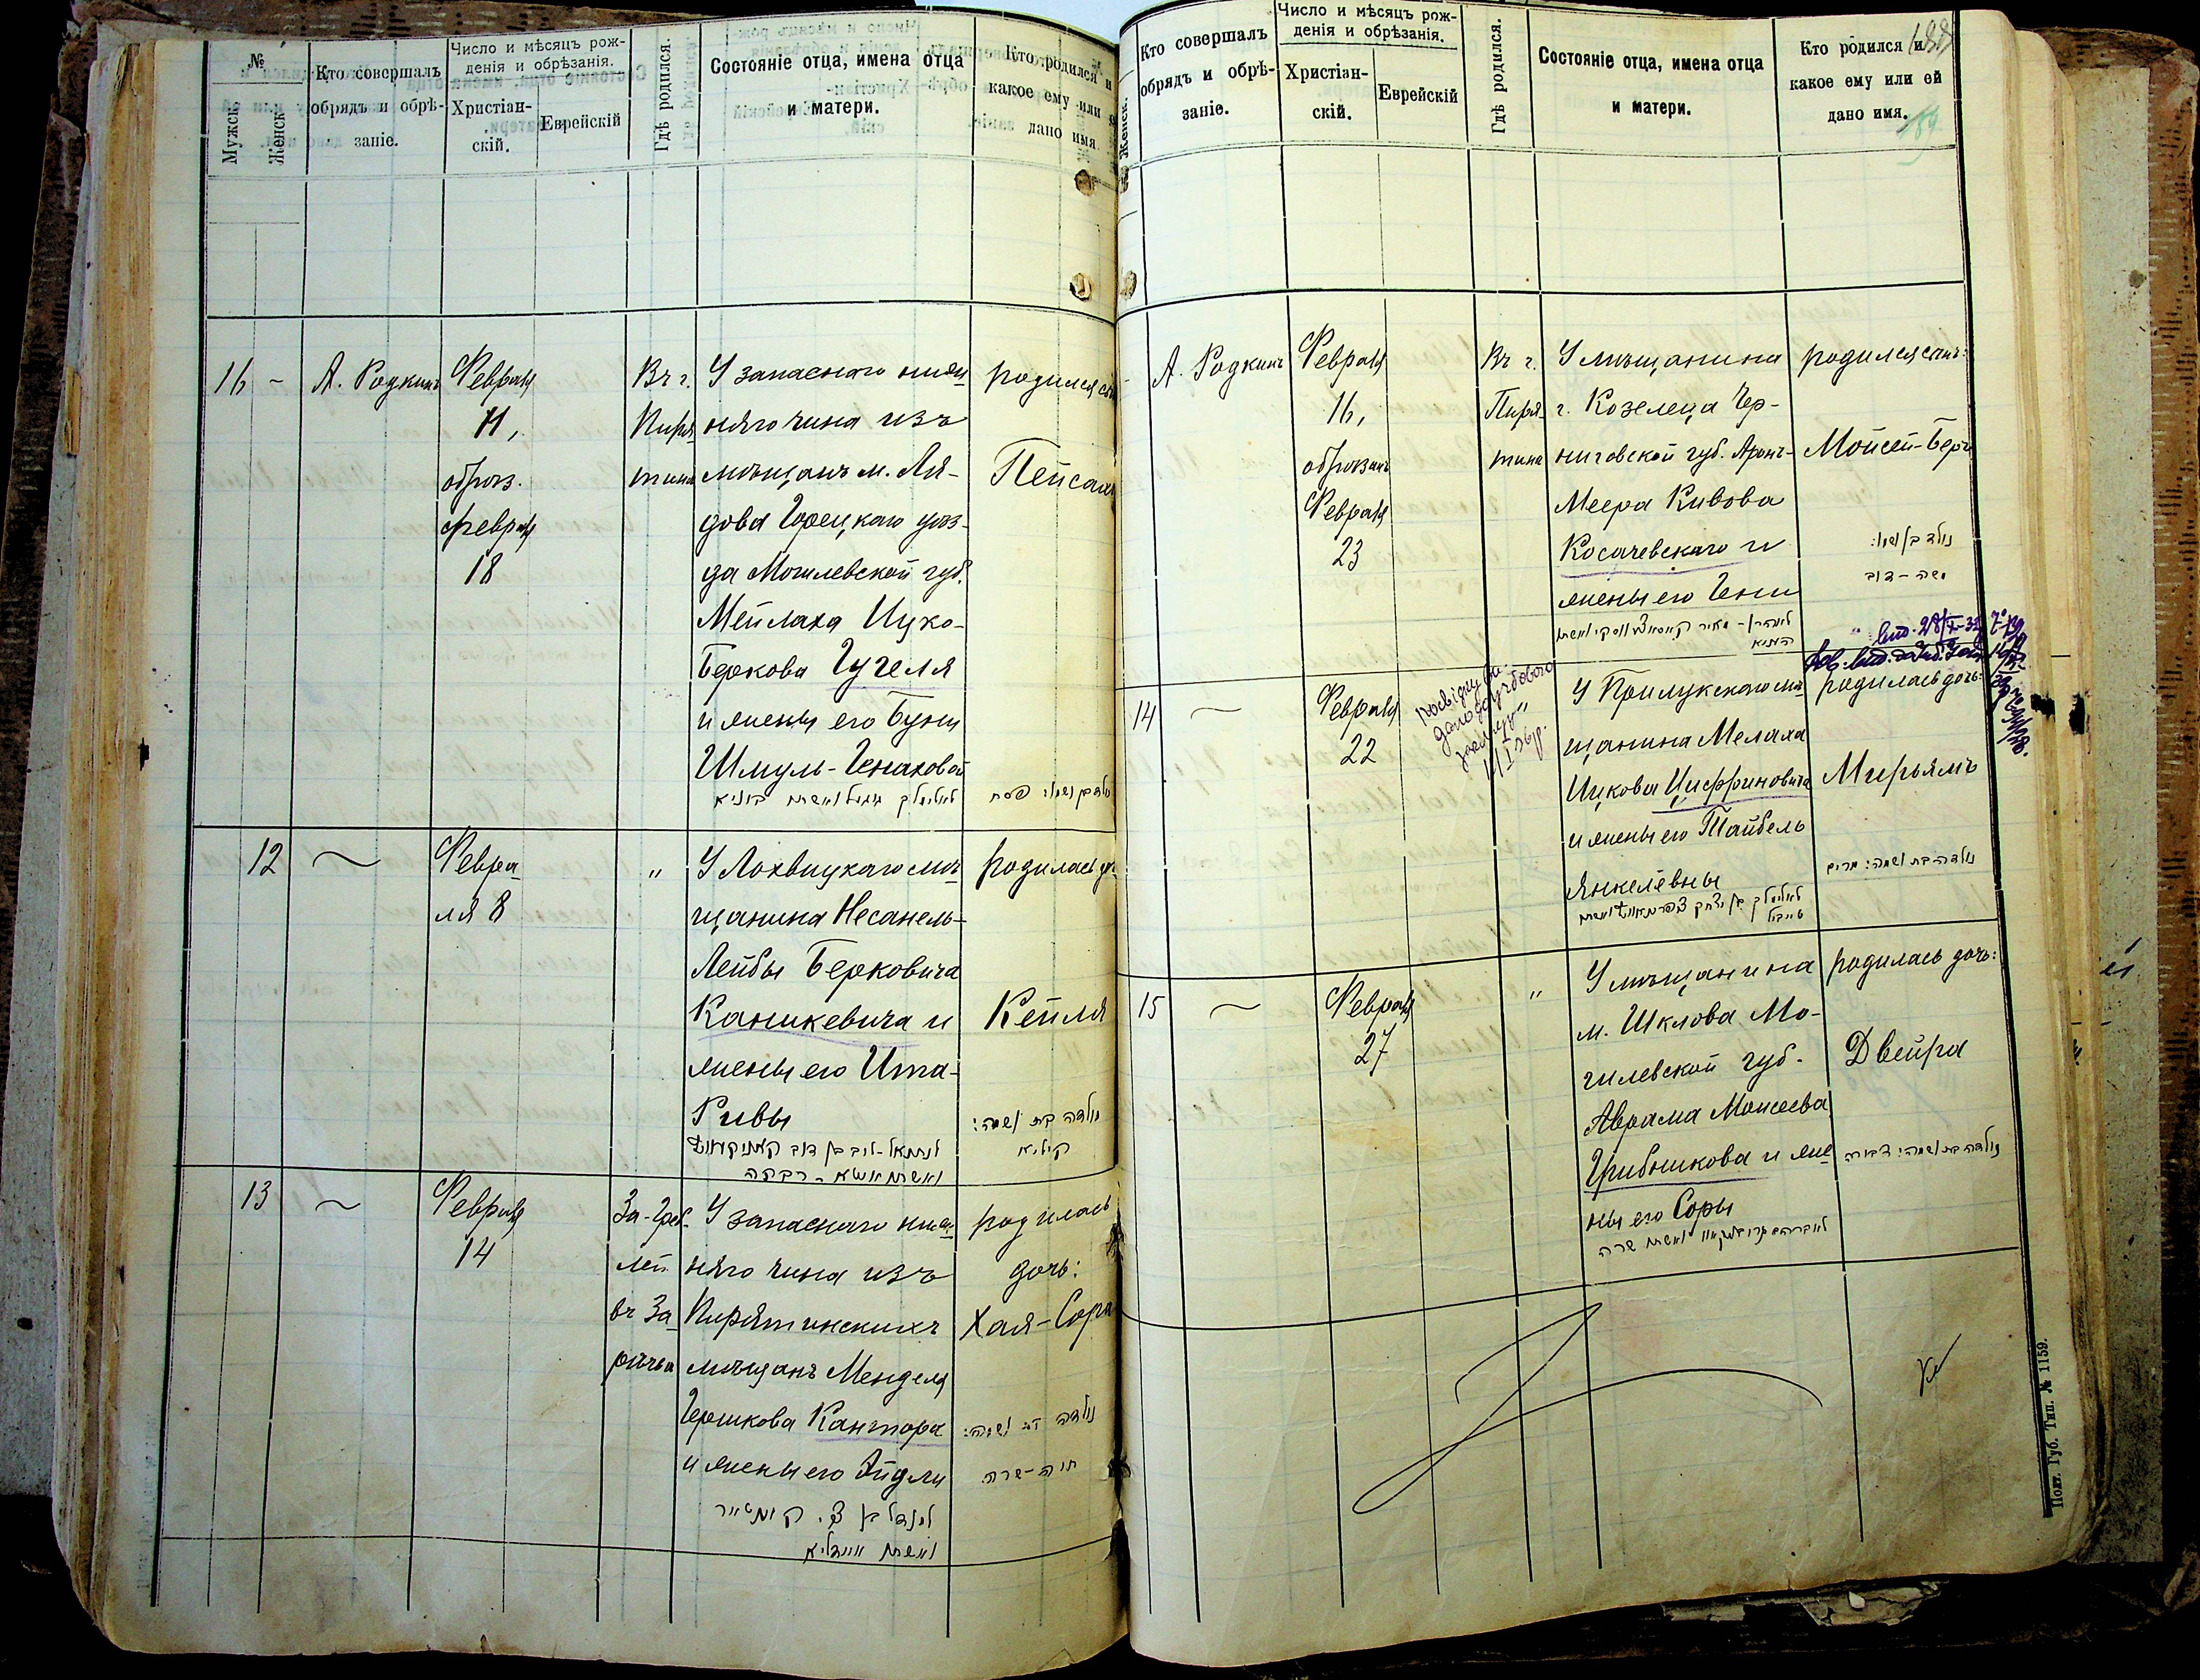 №
Мужск.
Женск.
Кто совершалъ
обрядъ и обрѣ-
заніе.
Число и мѣсяцъ рож-
денія и обрѣзанія.
Христіан-
скій.
Еврейскій
Гдѣ родился.
Состояніе отца, имена отца
и матери.
Кто родился и
какое ему или
дано имя
16 -
А. Родкинъ
Февраля
11,
обрѣз.
февраля
18
Въ г.
Пиря-
тинѣ
У запаснаго ниж-
няго чина изъ
мѣщанъ м. Ля-
дова Горецкаго уѣз-
да Могилевской губ.
Мейлаха Ицко-
Беркова Гугеля
и жены его Буни
Шмуль-Генаховой
родился сынъ
Пейсахъ
נולד בן ושמו: פסח
12
~
Февра-
ля 8
"
У Лохвицкаго мѣ-
щанина Несанель-
Лейбы Берковича
Каникевича и
жены его Ита-
Ривы
родилась дочь
Кейля
נולדה בת ושמה:
קיליא
13
~
Февраля
14
За-Греб-
лей
въ За-
рѣчьи
У запаснаго ниж-
няго чина изъ
Пирятинскихъ
мѣщанъ Менделя
Гершкова Кантора
и жены его Эйдли
родилась
дочь:
Хая-Сора
נולדה בת ושמה:
חיה-שרה
Женск.
Кто совершалъ
обрядъ и обрѣ-
заніе.
Число и мѣсяцъ рож-
денія и обрѣзанія.
Христіан-
скій.
Еврейскій
Гдѣ родился.
Состояніе отца, имена отца
и матери.
Кто родился и
какое ему или ей
дано имя.
А. Родкинъ
Февраля
16,
обрѣзанъ
Февраля
23
Въ г.
Пиря-
тинѣ
У мѣщанина
г. Козелеца Чер-
ниговской губ. Аронъ-
Меера Кивова
Косачевскаго и
жены его Гени
родился сынъ:
Мойсей-Беръ
נולד בן ושמו:
משה-דוב
14
~
Февраля
22
У Прилукскаго мѣ-
щанина Мелаха
Ицкова Циффриновича
и жены его Тайбель
Янкелевны
родилась дочь:
Мирьямъ
נולדה בת ושמה: מרים
15
~
Февраля
27
"
У мѣщанина
м. Шклова Мо-
гилевской губ.
Аврама Моисеева
Грибникова и же-
ны его Соры
родилась дочь:
Двейра
נולדה בת ושמה: דבורה
Полт. Губ. Тип. № 1159.